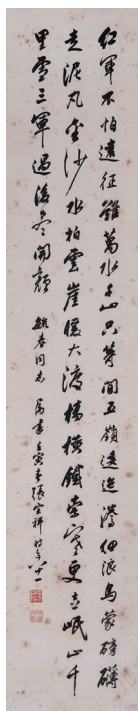 红军不怕遠征難萬水千山只等閒五嶺逶迤騰細浪烏蒙磅礴
走泥丸金沙水拍雲崖暖大渡橋橫鐵索寒更喜岷山千
里雪三軍過後盡開顏 毓春同志 属書 壬寅 張宗祥時年八十一